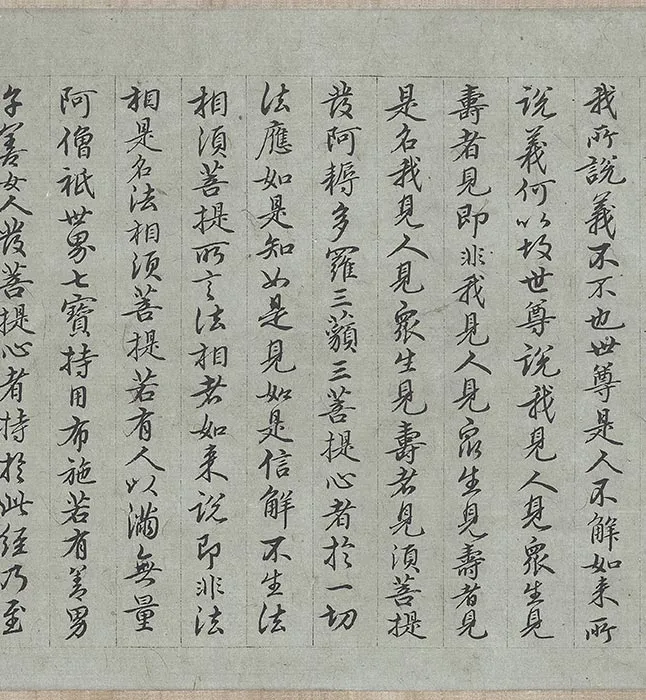 我所說義不不也世尊是人不解如来所
說義何以故世尊說我見人見眾生見
壽者見即非我見人見眾生見壽者見
是名我見人見眾生見壽者見須菩提
發阿耨多羅三藐三菩提心者於一切
法應如是知如是見如是信解不生法
相須菩提所言法相者如来說即非法
相是名法相須菩提若有人以滿無量
阿僧祇世界七寶持用布施若有善男
子善女人發菩提心者持於此經乃至